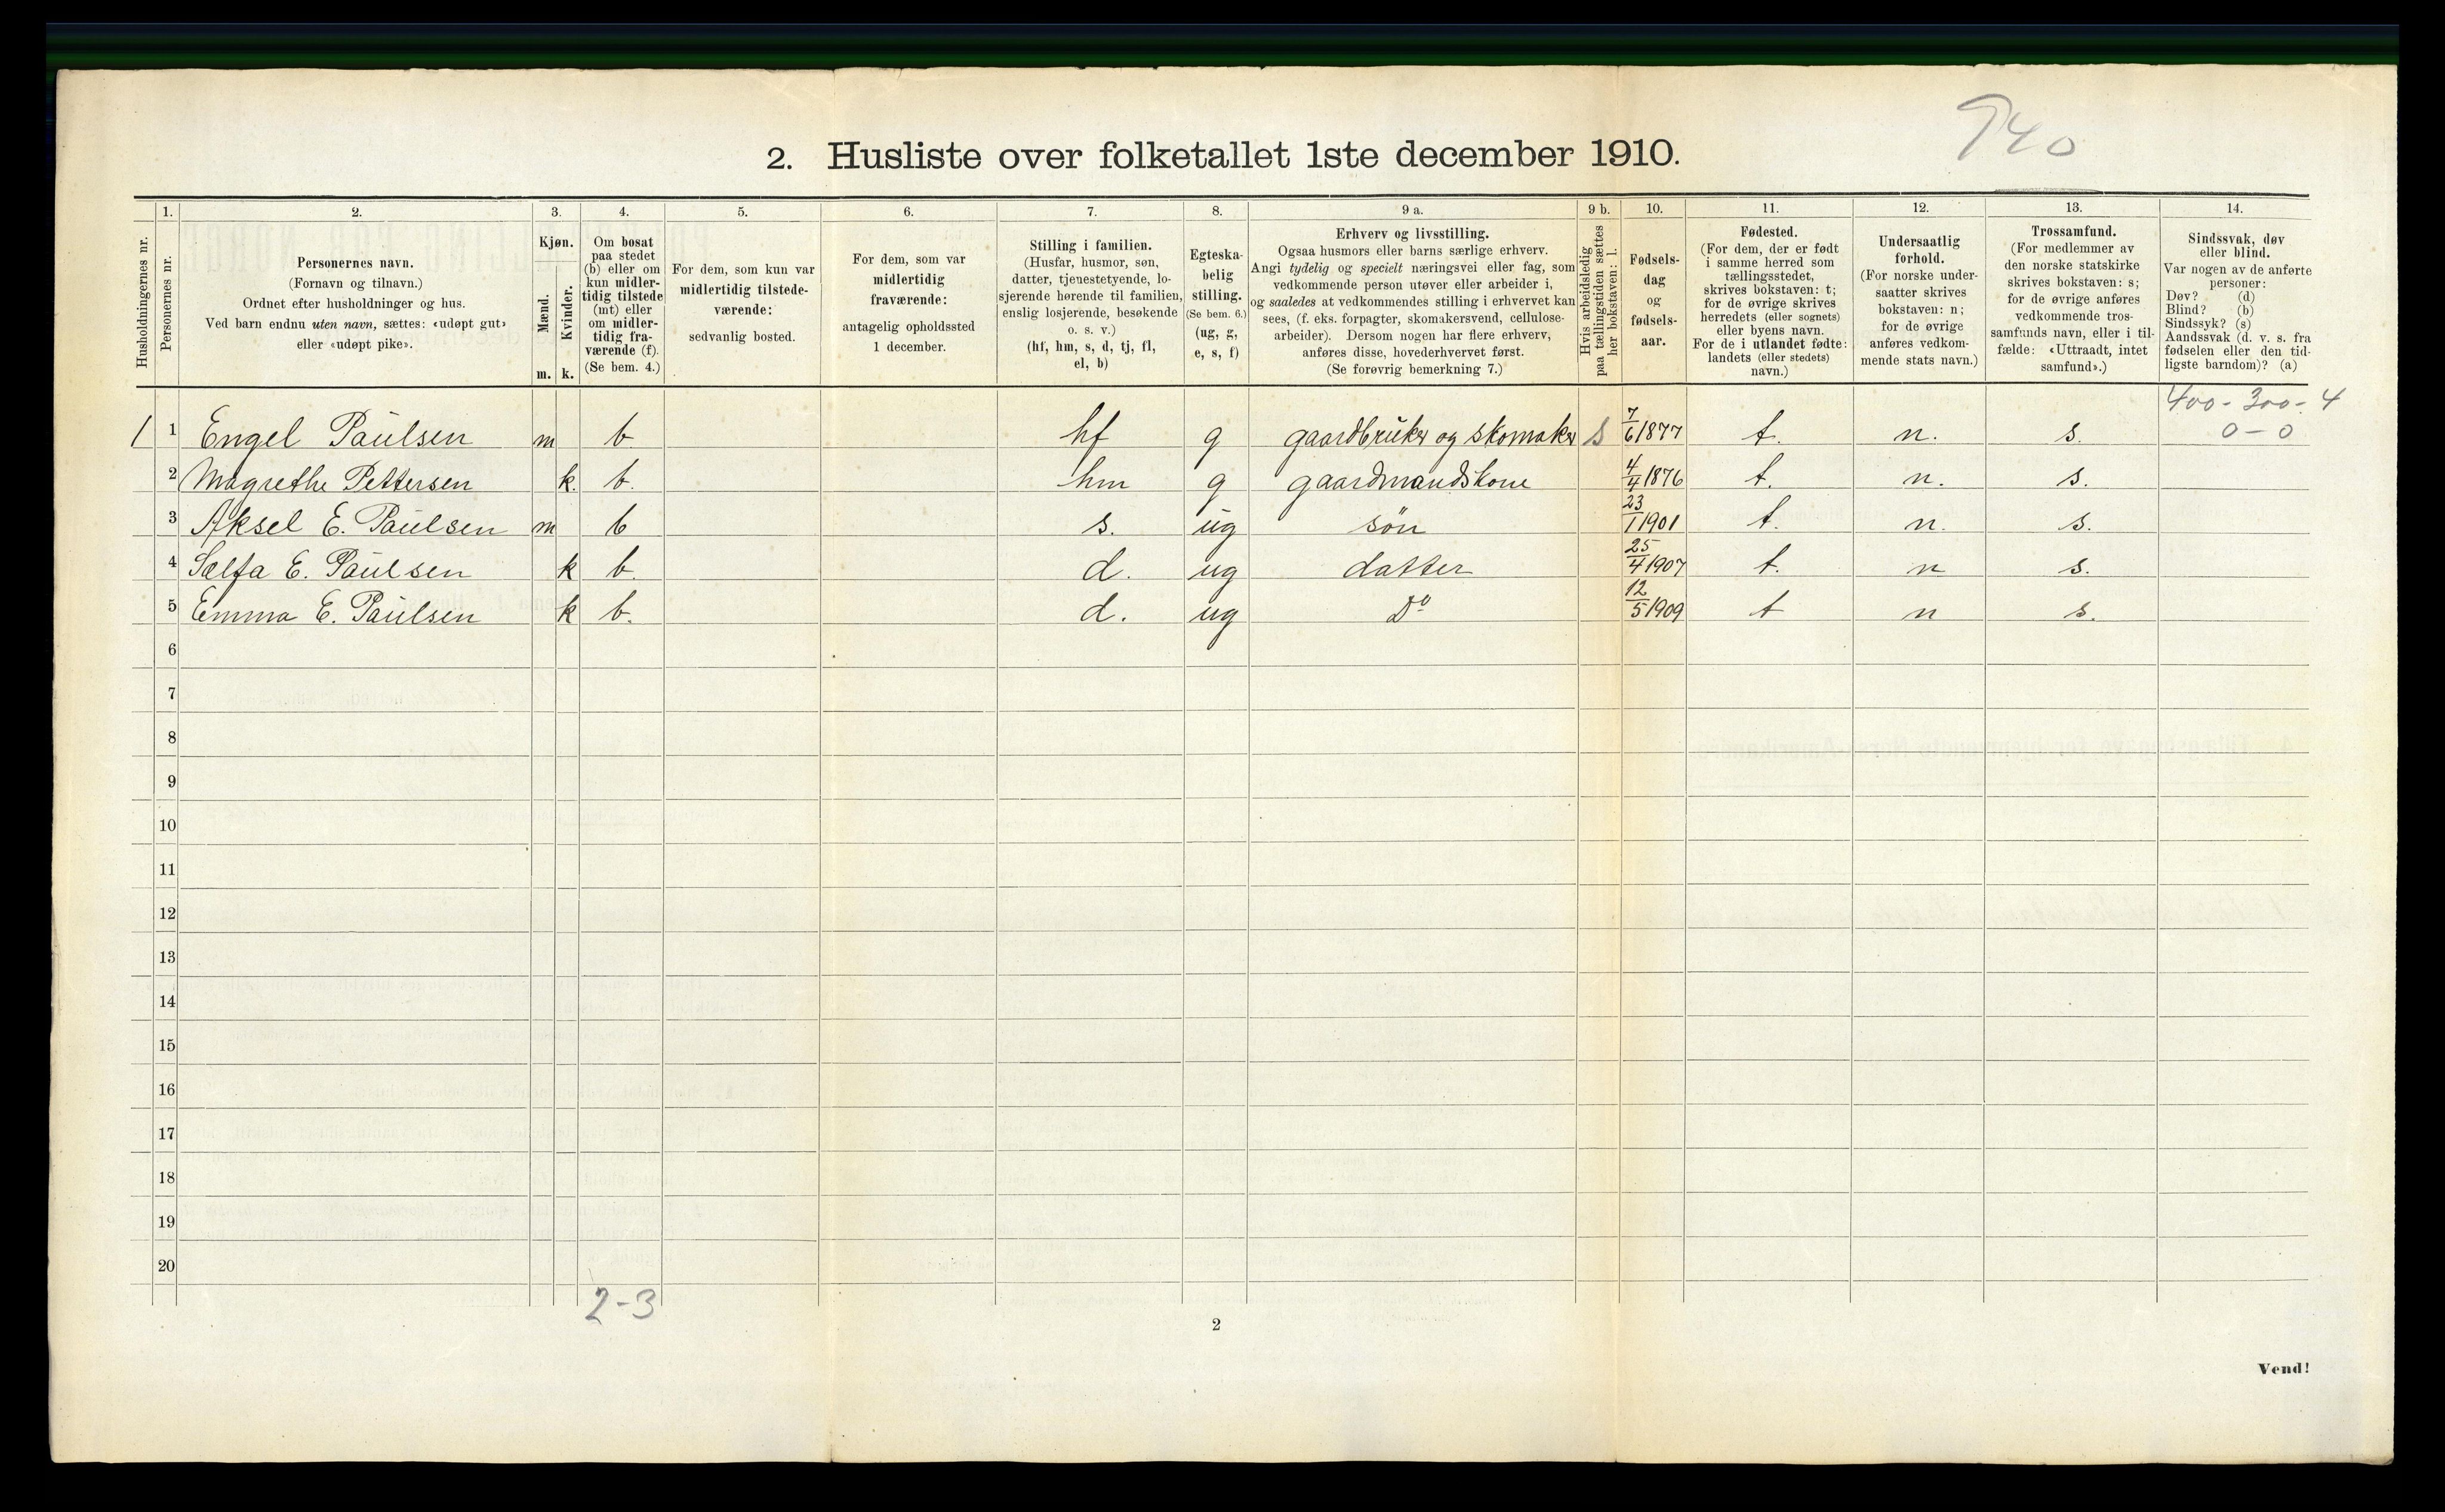 740
2. Husliste over folketallet 1ste december 1910.
Husholdningernes nr.
1.
Personernes nr.
2.
Personernes navn.
(Fornavn og tilnavn.)
Ordnet efter husholdninger og hus.
Ved barn endnu uten navn, sættes: «udøpt gut»
eller «udøpt pike».
3.
Kjøn.
Mænd.
Kvinder.
m. k.
4.
Om bosat
paa stedet
(b) eller om
kun midler-
tidig tilstede
(mt) eller
om midler-
tidig fra-
værende (f).
(Se bem. 4.)
5.
For dem, som kun var
midlertidig tilstede-
værende:
sedvanlig bosted.
6.
For dem, som var
midlertidig
fraværende:
antagelig opholdssted
1 december.
7.
Stilling i familien.
(Husfar, husmor, søn,
datter, tjenestetyende, lo-
sjerende hørende til familien,
enslig losjerende, besøkende
o. s. v.)
(hf, hm, s, d, tj, fl,
el, b)
8.
Egteska-
belig
stilling.
(Se bem. 6.)
(ug, g,
e, s, f)
9 a.
Erhverv og livsstilling.
Ogsaa husmors eller barns særlige erhverv.
Angi tydelig og specielt næringsvei eller fag, som
vedkommende person utøver eller arbeider i,
og saaledes at vedkommendes stilling i erhvervet kan
sees, (f. eks. forpagter, skomakersvend, cellulose-
arbeider). Dersom nogen har flere erhverv,
anføres disse, hovederhvervet først.
(Se forøvrig bemerkning 7.)
9 b.
Hvis arbeidsledig
paa tællingstiden sættes
her bokstaven: l.
10.
Fødsels-
dag
og
fødsels-
aar.
11.
Fødested.
(For dem, der er født
i samme herred som
tællingsstedet,
skrives bokstaven: t;
for de øvrige skrives
herredets (eller sognets)
eller byens navn.
For de i utlandet fødte:
landets (eller stedets)
navn.)
12.
Undersaatlig
forhold.
(For norske under-
saatter skrives
bokstaven: n;
for de øvrige
anføres vedkom-
mende stats navn.)
13.
Trossamfund.
(For medlemmer av
den norske statskirke
skrives bokstaven: s;
for de øvrige anføres
vedkommende tros-
samfunds navn, eller i til-
fælde: «Uttraadt, intet
samfund».)
14.
Sindssvak, døv
eller blind.
Var nogen av de anførte
personer:
Døv? (d)
Blind? (b)
Sindssyk? (s)
Aandssvak (d. v. s. fra
fødselen eller den tid-
ligste barndom)? (a)
400 - 300 - 4
0 - 0
1 1 Engel Paulsen m b hf g gaardbruker og skomaker s 7/6 1877 t. n. s.
2 Magrethe Pettersen k. b. hm g gaardmandskone 4/4 1876 t. n. s.
3 Aksel E. Paulsen m b s. ug søn 23/1 1901 t. n. s.
4 Selfa E. Paulsen k b. d. ug datter 25/4 1907 t. n s.
5 Emma E. Paulsen k b. d. ug Do 12/5 1909 t n s.
6
7
8
9
10
11
12
13
14
15
16
17
18
19
20
2-3
2
Vend!